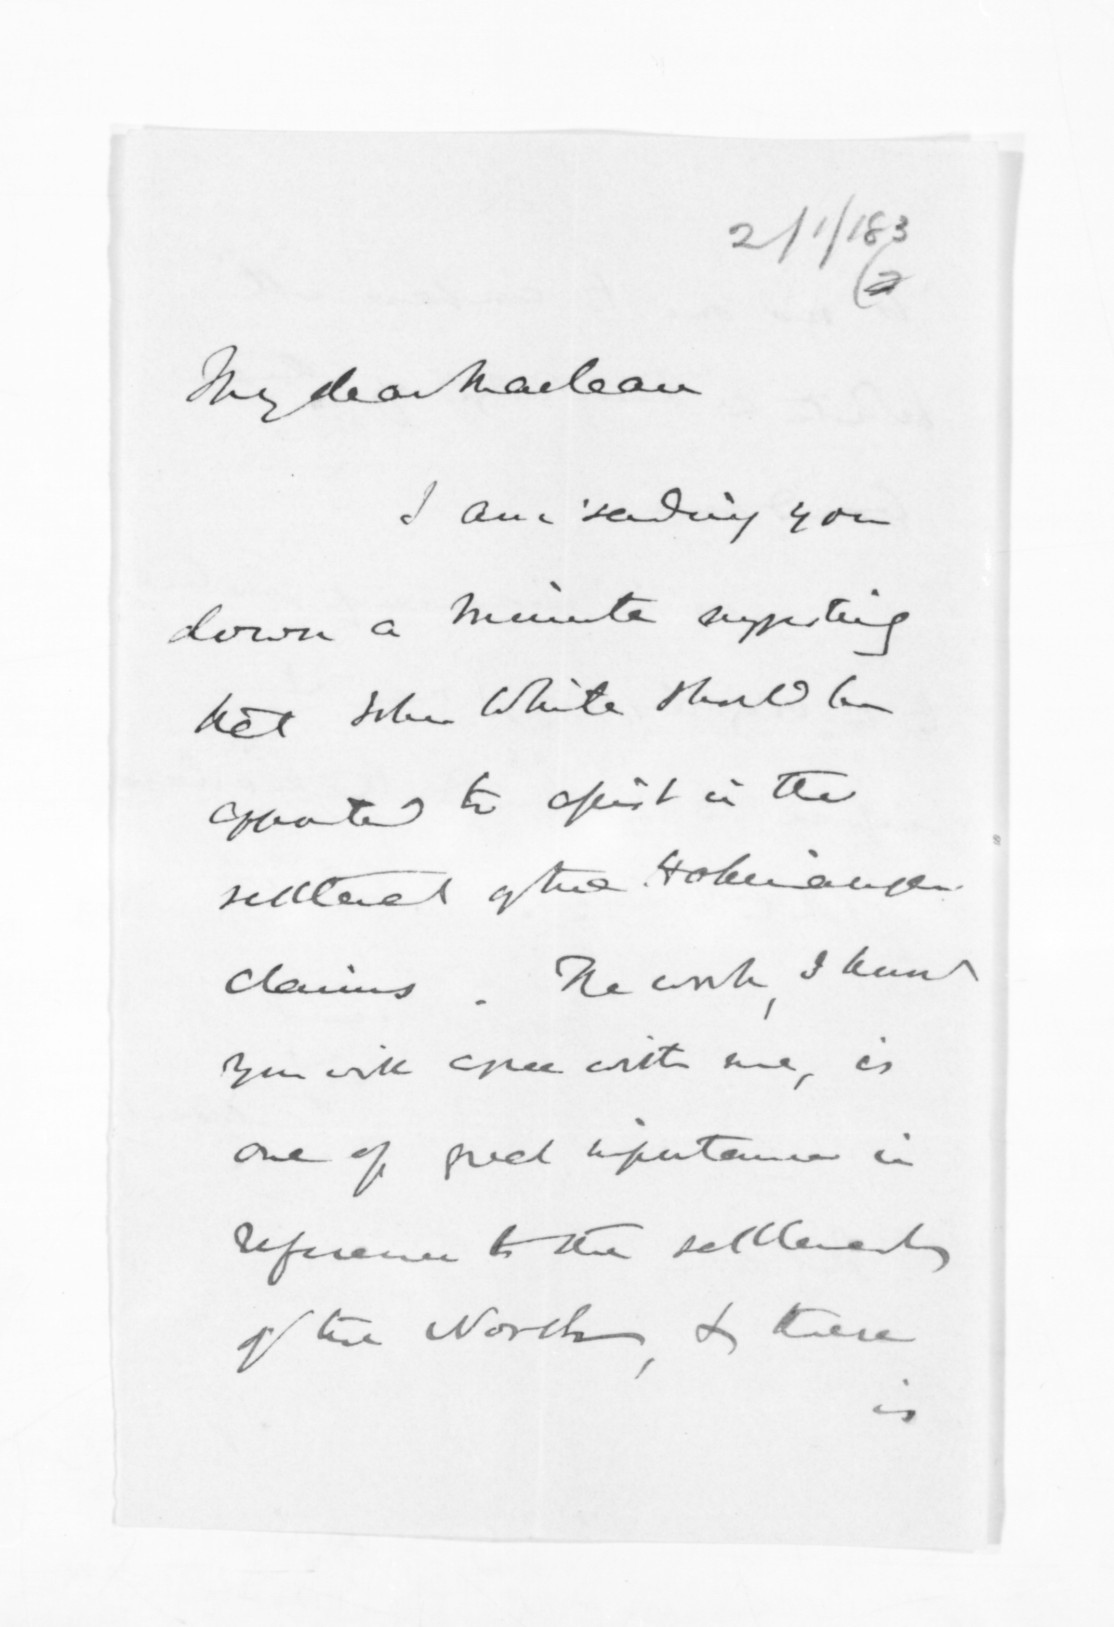 2/1/183
(2
My dear Maclean
I am sending you
down a Minute suggesting
that John White should be
appointed to assist in the
settlement of the Hokianga
claims. The work, I know
you will agree with me, is
one of great importance in
reference to the settlements
of the North, & there
is